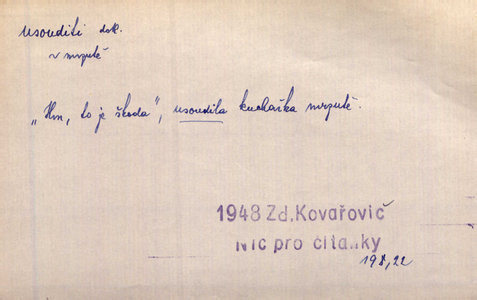 usouditi dok.
v mrzutě
„Hm, to je škoda", usoudila kuchařka mrzutě.
1948 Zd. Kovařovič
Nic pro čítanky
198,22